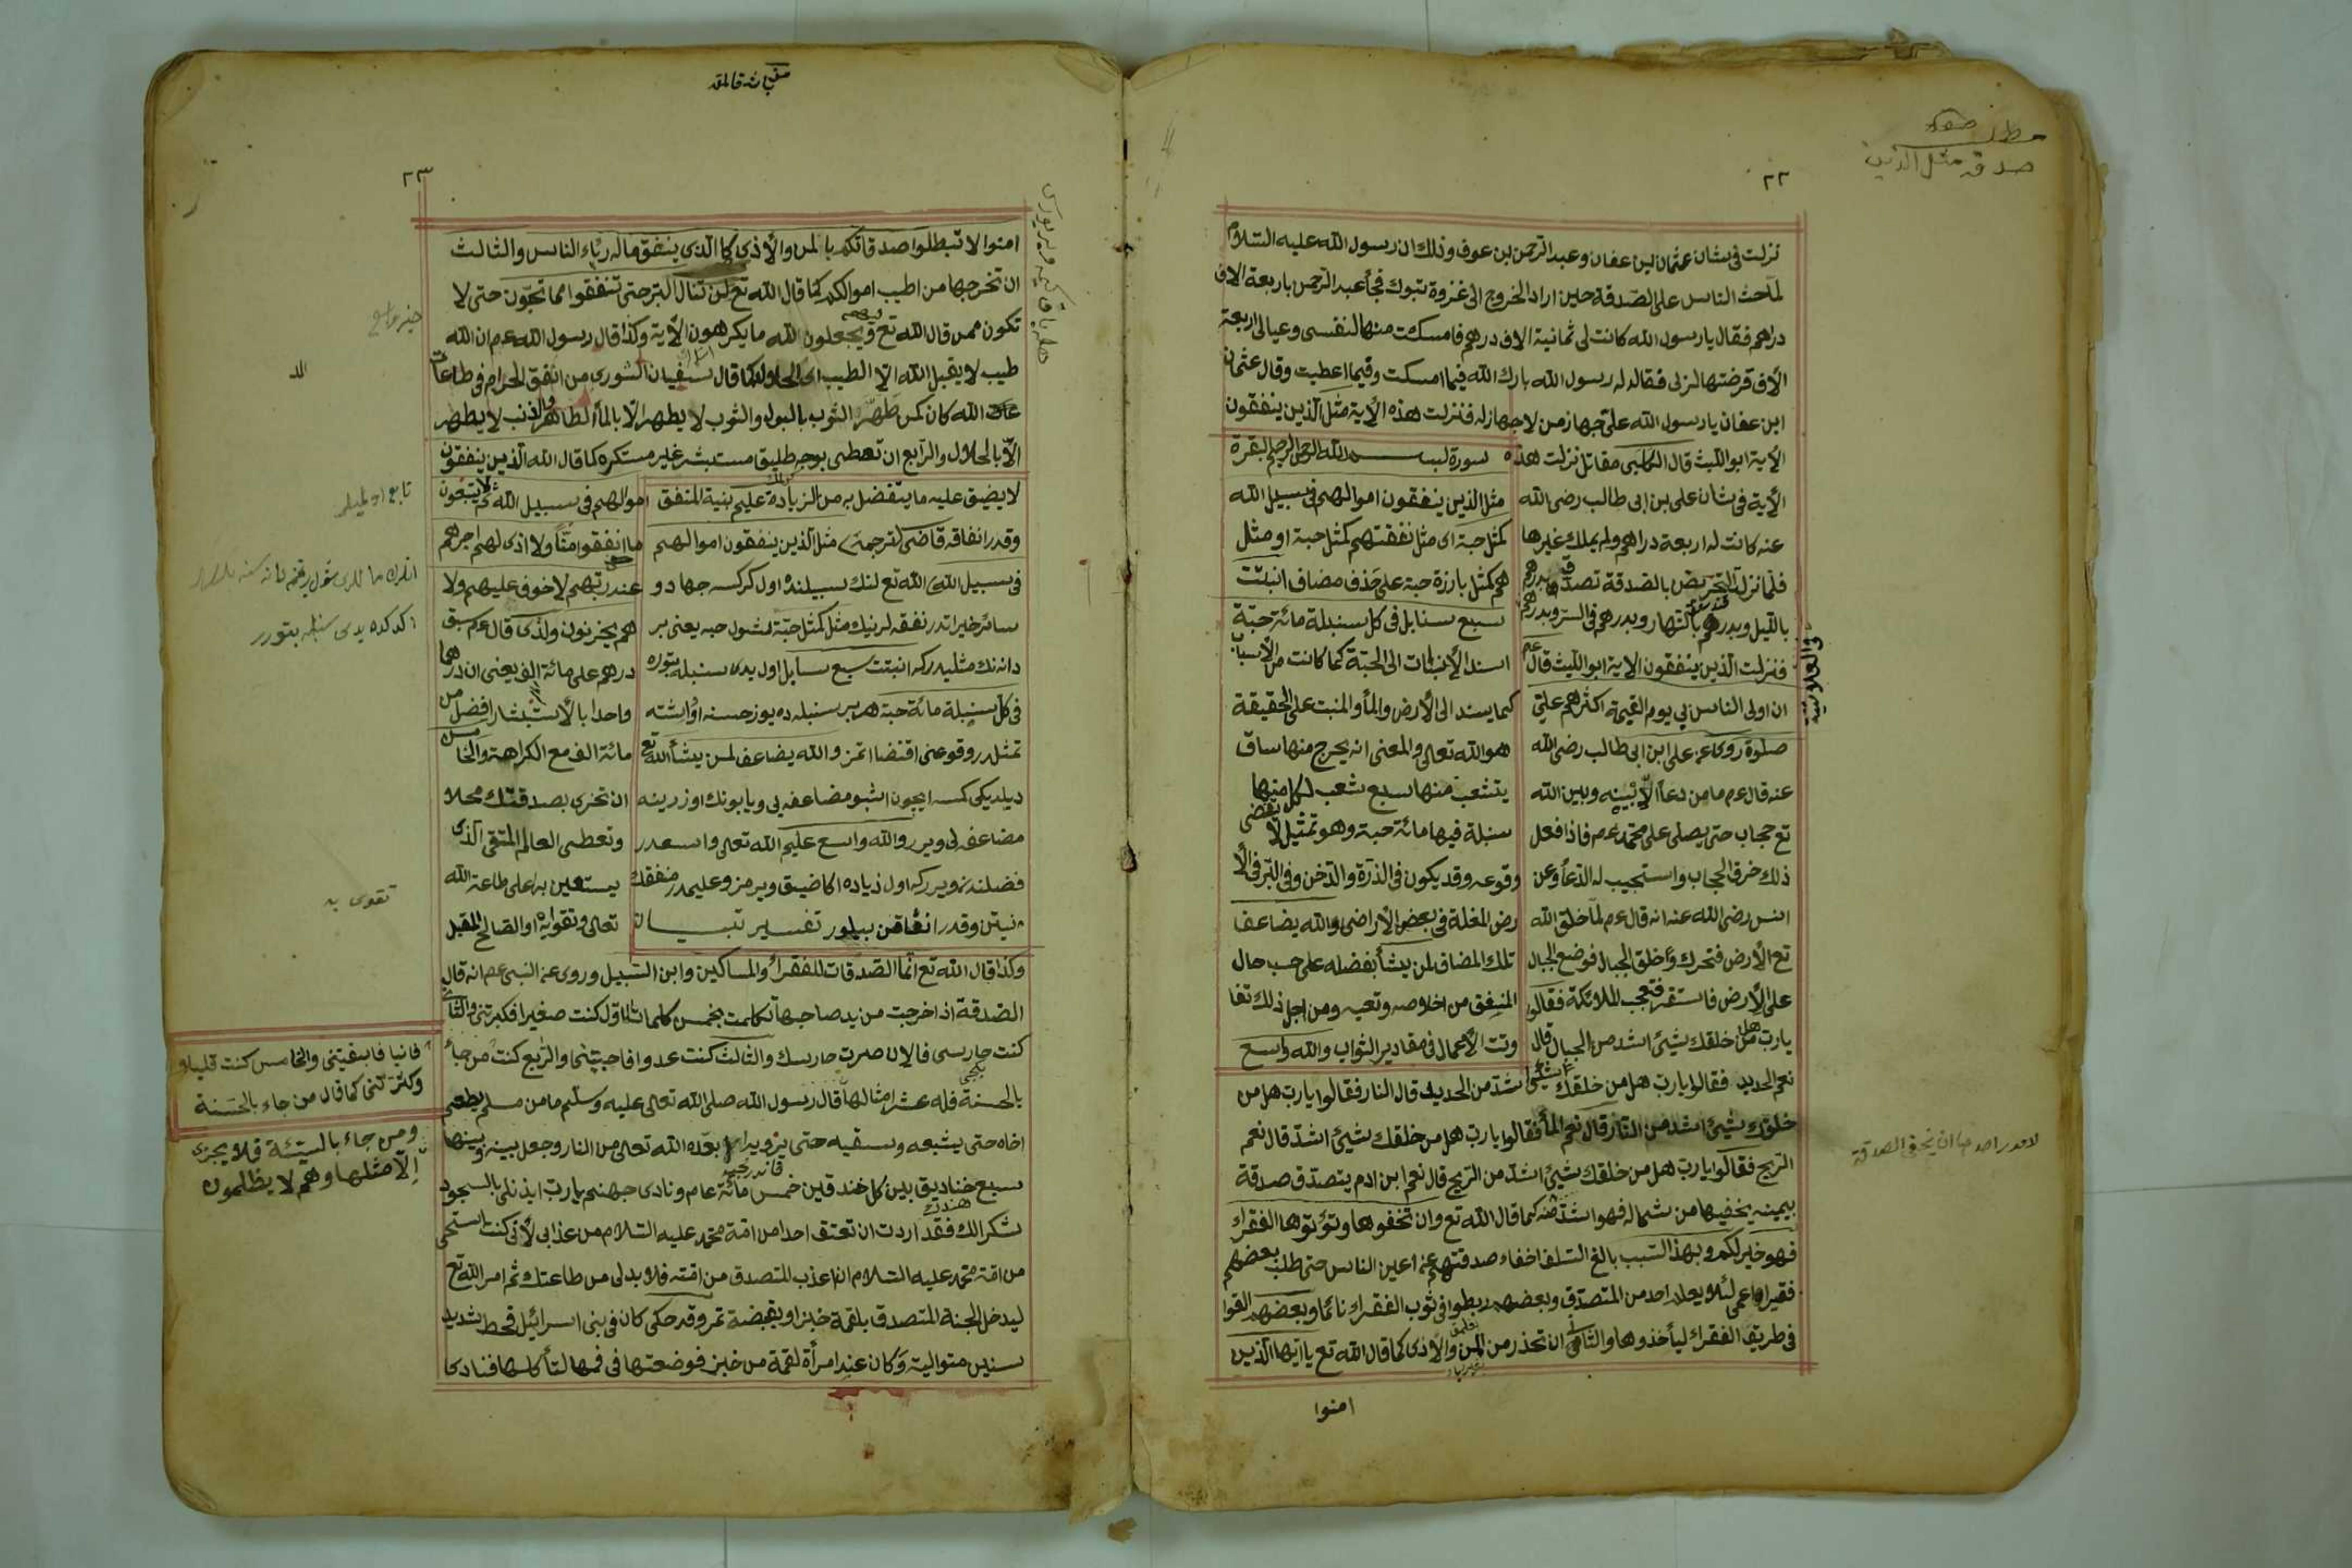 ٢٢
صدقه مثل الذين
نزلت فى شان عثمان بن عفان وعبد الرحمن بن عوف وذلك ان رسول الله عليه السلام
لما حث الناس على الصدقة حين اراد الخروج الى غزوة تبوك فجأ عبد الرحمن باربعة الاف
دراهم فقال يا رسول الله كانت لى ثمانية الاف درهم فامسكت منها لنفسى وعيالى اربعة
الأف قرضتها لربى فقال له رسول الله بارك الله فيما امسكت وفيما اعطيت وقال عثمان
ابن عفان يا رسول الله على جهاز من لا جهاز له فنزلت هذه الأية مثل الذين ينفقون
الأية ابو الليث قال الكلبى مقاتل نزلت هذه
الأية فى شان على بن ابى طالب رضى الله
عنه كانت له اربعة دراهم ولم يملك غيرها
فلما نزل التحريض بالصدقة تصدق بدرهم
بالليل وبدرهم بالنهار وبدرهم فى السر وبدرهم
فى العلانية
فنزلت الذين ينفقون الاية ابو الليث قال عم
ان اولى الناس بى يوم القيمة اكثرهم على
صلوة روى عن على ابن ابى طالب رضى الله
عنه قال عم ما من دعأ الا بينه وبين الله
تع حجاب حتى يصلى على محمد عم فاذا فعل
ذلك خرق الحجاب واستجيب له الدعأ وعن
انس رضى الله عنه انه قال عم لما خلق الله
تع الأرض فتحرك وأ خلق الجبال فوضع الجبال
على الأرض فاستقر فتعجب الملائكة فقالوا
يا رب هل من خلقك شيئ اشد من الجبال قال
سورة بسم الله الرحمن الرحيم البقرة
مثل الذين ينفقون اموالهم فى سبيل الله
كمثل حبة اى مثل نفقتهم كمثل حبة او مثل
هم كمثل بارزة حبة على حذف مضاف انبتت
سبع سنابل فى كل سنبلة مائة حبة
اسند الأنبات الى الحبة كما كانت من الأسباب
كما يسند الى الأرض والمأ والمنبت على الحقيقة
هو الله تعالى والمعنى انه يخرج منها ساق
يتشعب منها سبع شعب لكل منها
سنبلة فيها مائة حبة وهو تمثيل لا يقتضى
وقوعه وقد يكون فى الذرة والدخن وفى البر فى الأ
رض المغلة فى بعض الأراضى والله يضاعف
تلك المضاف لمن يشأ بفضله على حسب حال
المنفق من اخلاصه وتعبه ومن اجل ذلك تفا
وتت الأعمال فى مقادير الثواب والله واسع
نعم الحديد فقالوا يا رب هل من خلقك شيئ اشد من الحديد قال النار فقالوا يا رب هل من
خلقك شيئ اشد من النار قال نعم المأ فقالوا يا رب هل من خلقك شيئ اشد قال نعم
الريح فقالوا يا رب هل من خلقك شيئ اشد من الريح قال نعم ابن ادم يتصدق صدقة
بيمينه يخفيها من شماله فهو اشد منه كما قال الله تع وان تخفوها وتؤتوها الفقراء
فهو خير لكم وبهذا السبب بالغ السلف اخفاء صدقتهم عن اعين الناس حتى طلب بعضهم
فقيرا اعمى لئلا يعلم احد من المتصدق وبعضهم ربطوا فى ثوب الفقراء نائما وبعضهم القوا
فى طريق الفقراء ليأخذوها والثانى ان تحذر من المن والأذى كما قال الله تع يا ايها الذين
امنوا
٢٣
امنوا لا تبطلوا صدقاتكم بالمن والأذى كالذى ينفق ماله رئاء الناس والثالث
ان تخرجها من اطيب اموالكم كما قال الله تع لن تنال البر حتى تنفقوا مما تحبون حتى لا
تكون ممن قال الله تع فيهم ويجعلون لله ما يكرهون الأية وكذا قال رسول الله عم ان الله
طيب لا يقبل الله الا الطيب اى الحلال كما قال سفيان الثورى من انفق الحرام فى طاعات
الله كان كمن طهر الثوب بالبول والثوب لا يطهر الا بالمأ الطاهر والذنب لا يطهر
الا بالحلال والرابع ان تعطى بوجه طليق مستبشر غير مستكره كما قال الله الذين ينفقون
لا يضيق عليه ما يتفضل به من الزيادة عليم بنية المنفق
وقدر انفاقه قاضى ترجمه مثل الذين ينفقون اموالهم
فى سبيل الله الله تع لنك سبيلنده اول كركسه جها دو
سائر خيراتدر نفقه لرنيك مثل كمثل حبة شول حبه يعنى بر
دانه نك مثليدر كه انبتت سبع سنابل اول يدى سنبله بتوره
فى كل سنبلة مائة حبة هر بر سنبله ده يوز حسنه
تمثلدر وقوعنى اقتضا اتمز والله يضاعف لمن يشأ الله تع
ديلديكى كمسه ايچون
مضاعفه لى ويرر والله واسع عليم الله تعالى واسعدر
فضلنده ويرركه اول زياده اكا ضيق ويرمز وعليمدر منفقك
نيتن وقدر انفاقن بيلور تفسير تبيان
اموالهم فى سبيل الله ثم لا يتبعون
ما انفقوا منا ولا اذى لهم اجرهم
عند ربهم لا خوف عليهم ولا
هم يحزنون ولذى قال عم سبق
درهم على مائة الف يعنى ان درهما
واحدا بالأستبشار افضل من
مائة الف مع الكراهة والخامس
ان تخرى بصدقتك محلا
وتعطى العالم المتقى الذى
يستعين به على طاعة الله
تعالى وتقواه او الصالح المقبل
وكذا قال الله تع انما الصدقات للفقراء والمساكين وابن السبيل وروى عن النبى عم انه قال
الصدقة اذا خرجت من يد صاحبها تكلمت بخمس كلمات الاول كنت صغيرا فكبرتنى والثانى
كنت حارسى فالان صرت حارسك والثالث كنت عدوا فاحببتنى والرابع كنت
فانيا فابقيتنى والخامس كنت قليلا
وكثرتنى كما قال من جاء بالحسنة
ومن جاء بالسيئة فلا يجزى
الا مثلها وهم لا يظلمون
بالحسنة فله عشر امثالها قال رسول الله صلى الله تعالى عليه وسلم ما من مسلم يطعم
اخاه حتى يشبعه وسقيه حتى يرويه الا بعده الله تعالى من النار وجعل بينه وبينها
سبع خناديق بين كل خندقين خمس مائة عام ونادى جهنم يا رب ايذن لى بالسجود
شكرا لك فقد اردت ان تعتق احدا من امة محمد عليه السلام من عذابى لأنى كنت استحى
من امة محمد عليه السلام ان اعذب المتصدق من امته فلا بد لى من طاعتك ثم امر الله تع
ليدخل الجنة المتصدق بلقمة خبز او بقبضة تمر وقد حكى كان فى بنى اسرائيل قحط شديد
سنين متوالية وكان عند امرأة لقمة من خبز فوضعتها فى فمها لتأكلها فنادى
تقوى به